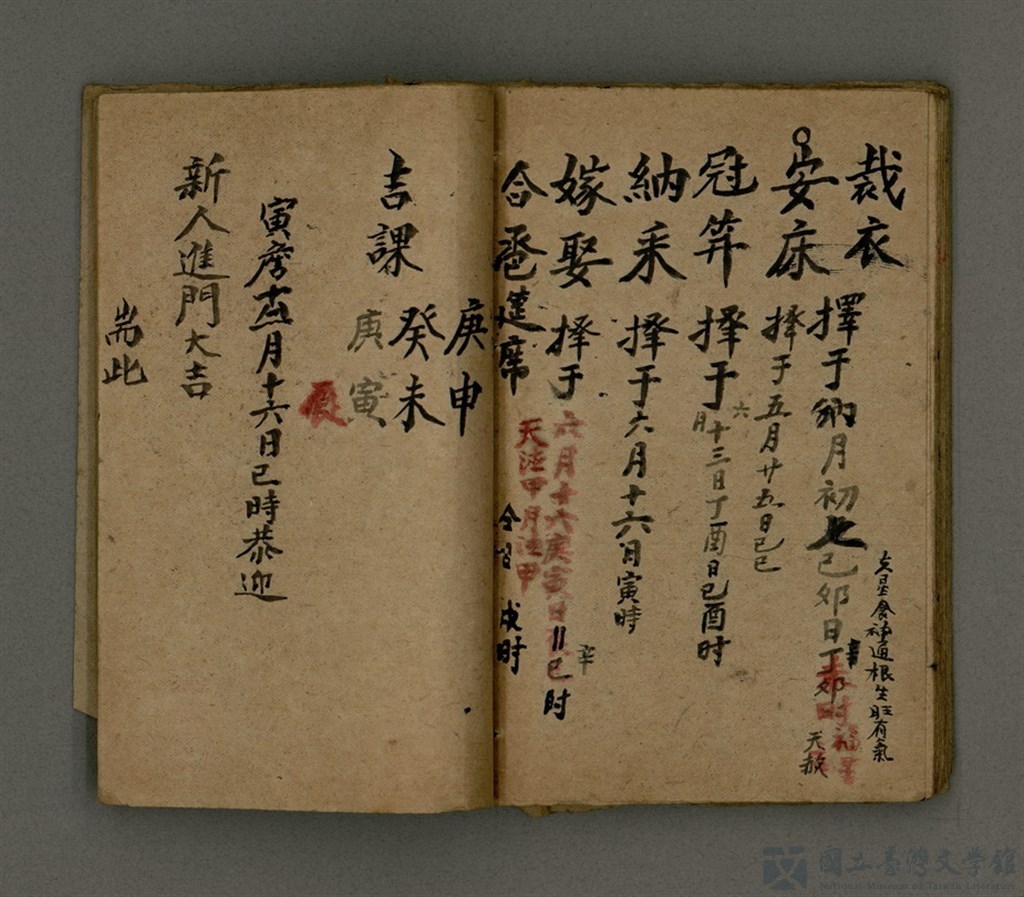 裁衣 擇于納月初七己卯日丁卯時
占星食神通根生旺有氣
福星
天赦
安床 择于五月廿五日己巳
冠笄 择于六月十三日丁酉日己酉时
納采 择于六月十六日寅時
嫁娶 择于六月十六庚寅日 巳时
辛
合卺筵席 仝習 戍时
天德甲月德甲
庚申
吉課 癸未
庚寅
辰
寅 月十六日巳時恭迎
新人進門大吉
耑此
國立臺灣文學館
National Museum of Taiwan Literature